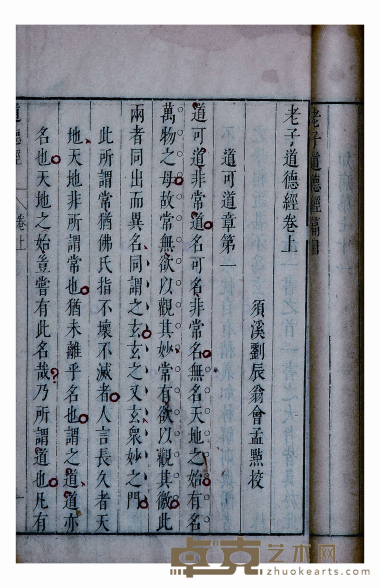 老子道德經篇目
老子道德經卷上
須溪劉辰翁會孟㸃校
道可道章第一
道可道非常道名可名非常名無名天地之始有名
萬物之母故常無欲以觀其妙常有欲以觀其徼此
兩者同出而異名同謂之玄玄之又玄衆妙之門
此所謂常猶佛氏指不壞不滅者人言長久者天
地天地非所謂常也猶未離乎名也謂之道道亦
名也天地之始豈嘗有此名哉乃所謂道也凡有
道德經
卷上
卓克艺术网
zhuokearts.com